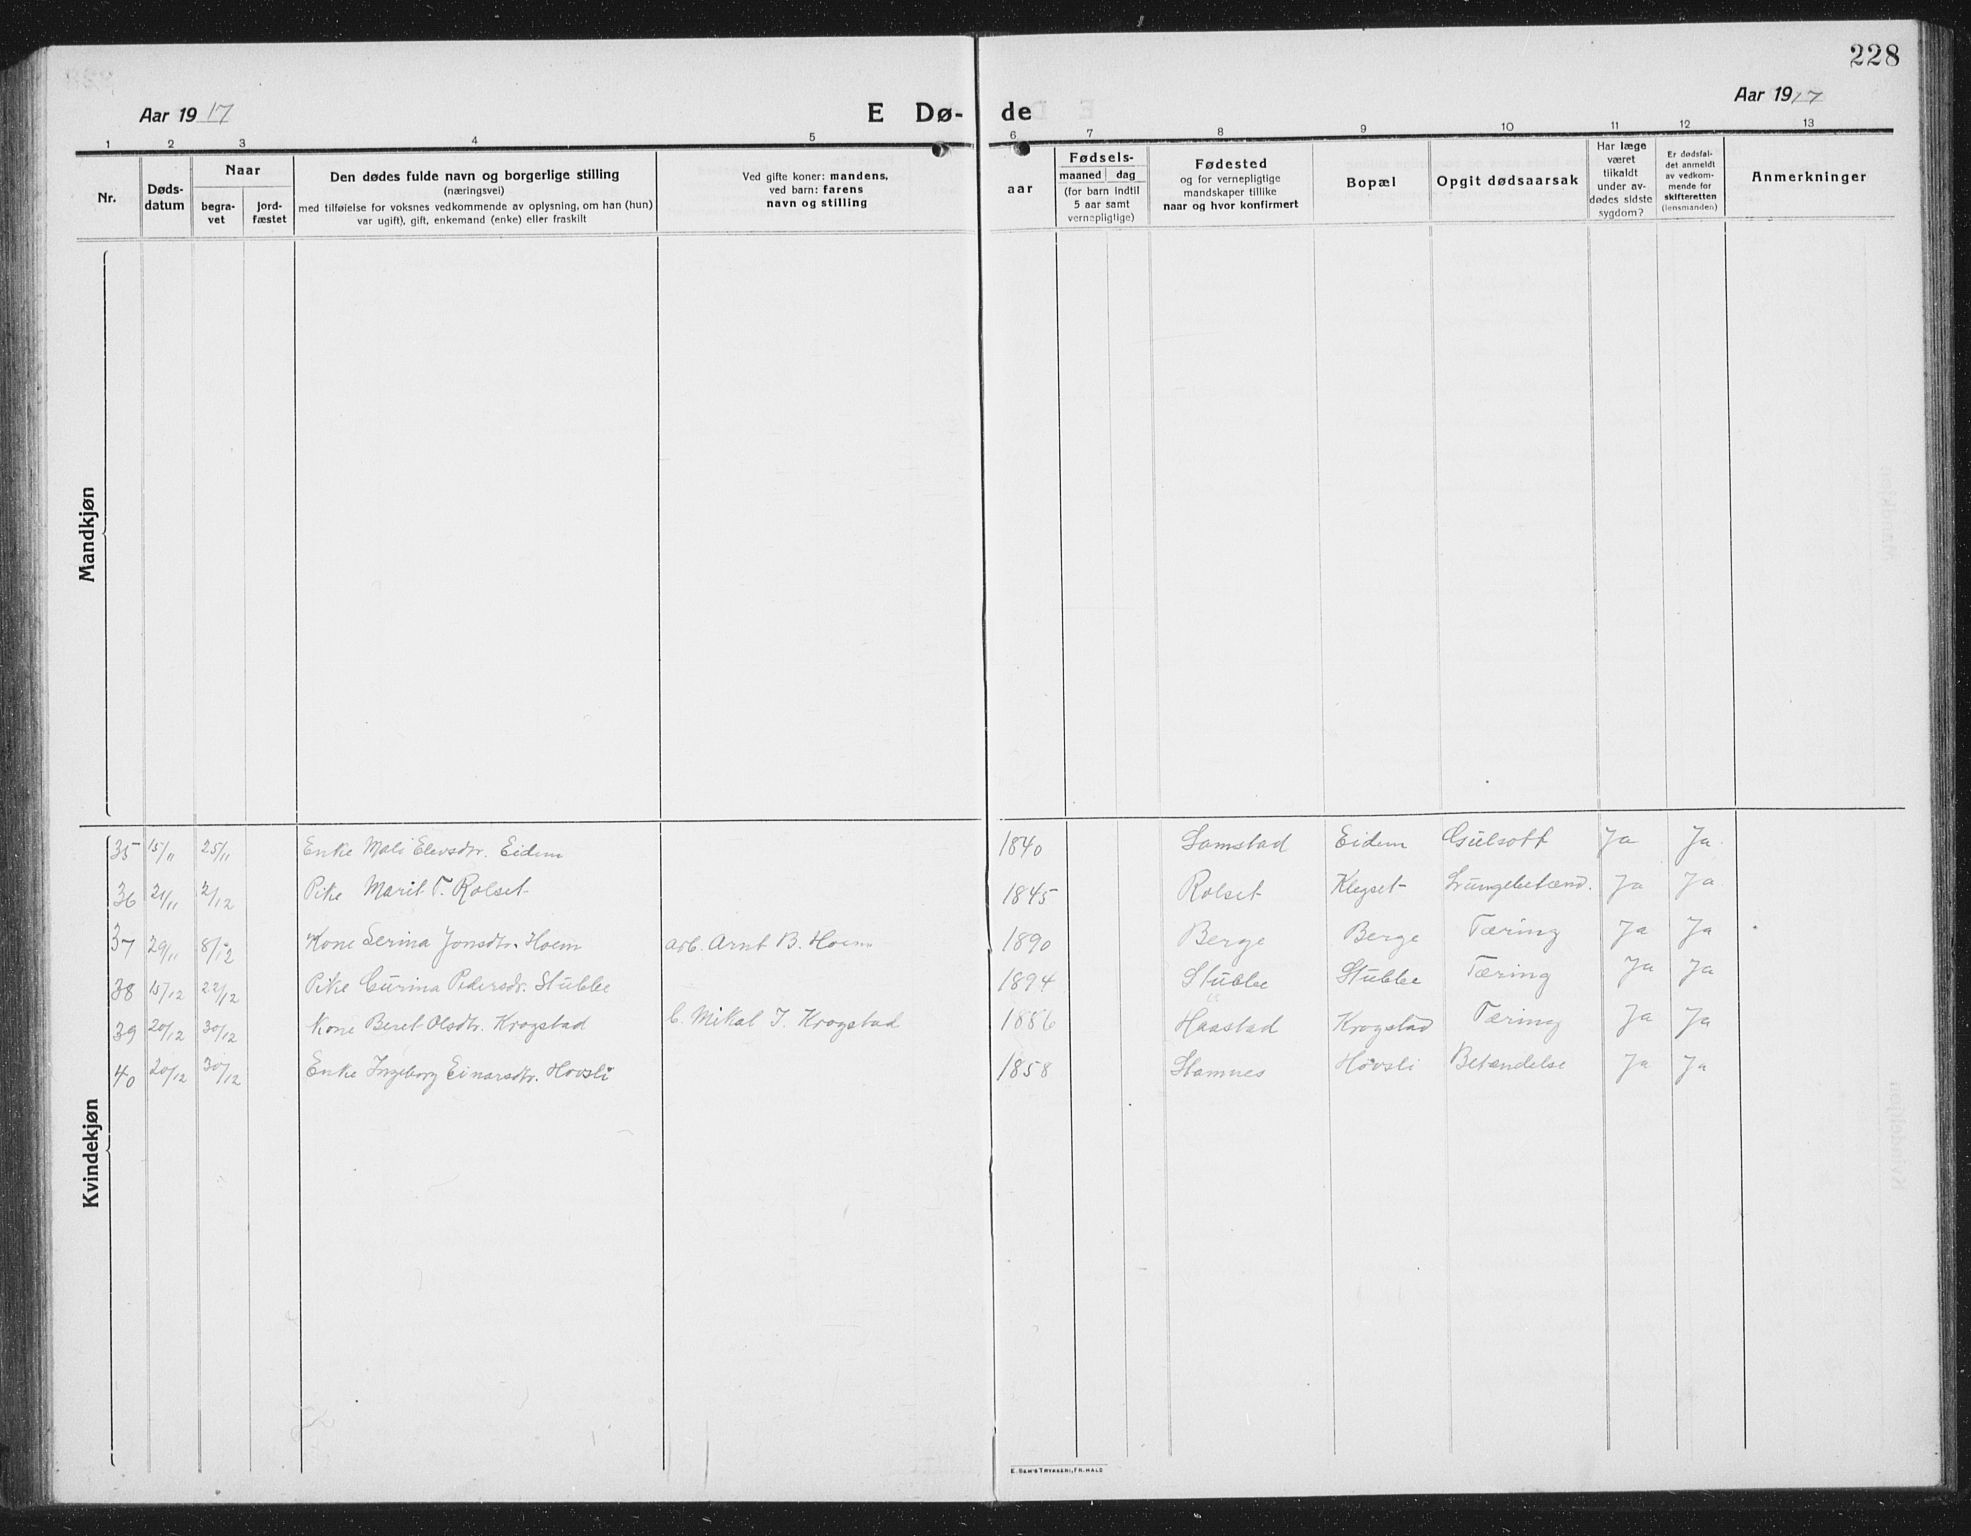 228
Aar 1917
E Dø-
de
Aar 1917
1 2 3 4 5 6 7 8 9 10 11 12 13
Nr.
Døds-
datum
Naar
begra-
vet
jord-
fæstet
Den dødes fulde navn og borgerlige stilling
(næringsvei)
med tilføielse for voksnes vedkommende av oplysning, om han (hun)
var ugift), gift, enkemand (enke) eller fraskilt
Ved gifte koner: mandens,
ved barn: farens
navn og stilling
aar
Fødsels-
maaned dag
(for barn indtil
5 aar samt
vernepligtige)
Fødested
og for vernepligtige
mandskaper tillike
naar og hvor konfirmert
Bopæl
Opgit dødsaarsak
Har læge
været
tilkaldt
under av-
dødes sidste
sygdom?
Er dødsfal-
det anmeldt
av vedkom-
mende for
skifteretten
(lensmanden)
Anmerkninger
Mandkjøn
Kvindekjøn
35 15/11 25/11 Enke Mali Elevsdtr. Eidem 1840 Samstad Eidem Gulsott Ja Ja.
36 21/11 2/12 Pike Marit T. Rolset 1845 Rolset Klegset Lungebetænd. Ja Ja
37 29/11 8/12 Kone Serina Jonsdtr. Hoem arb. Arnt B. Hoem 1890 Berge Berge Tæring Ja Ja
38 15/12 22/12 Pike Gurina Pedersdr. Stubbe 1894 Stubbe Stubbe Tæring Ja Ja
39 20/12 30/12 Kone Beret Olsdtr. Krogstad Mikal J. Krogstad 1856 Haastad Krogstad Tæring Ja Ja
40 20/12 30/12 Enke Ingeborg Einarsdtr. Hovsli 1858 Stamnes Hovsli Betændelse Ja Ja
E. SEM'S TRYKKERI, FR.HALD